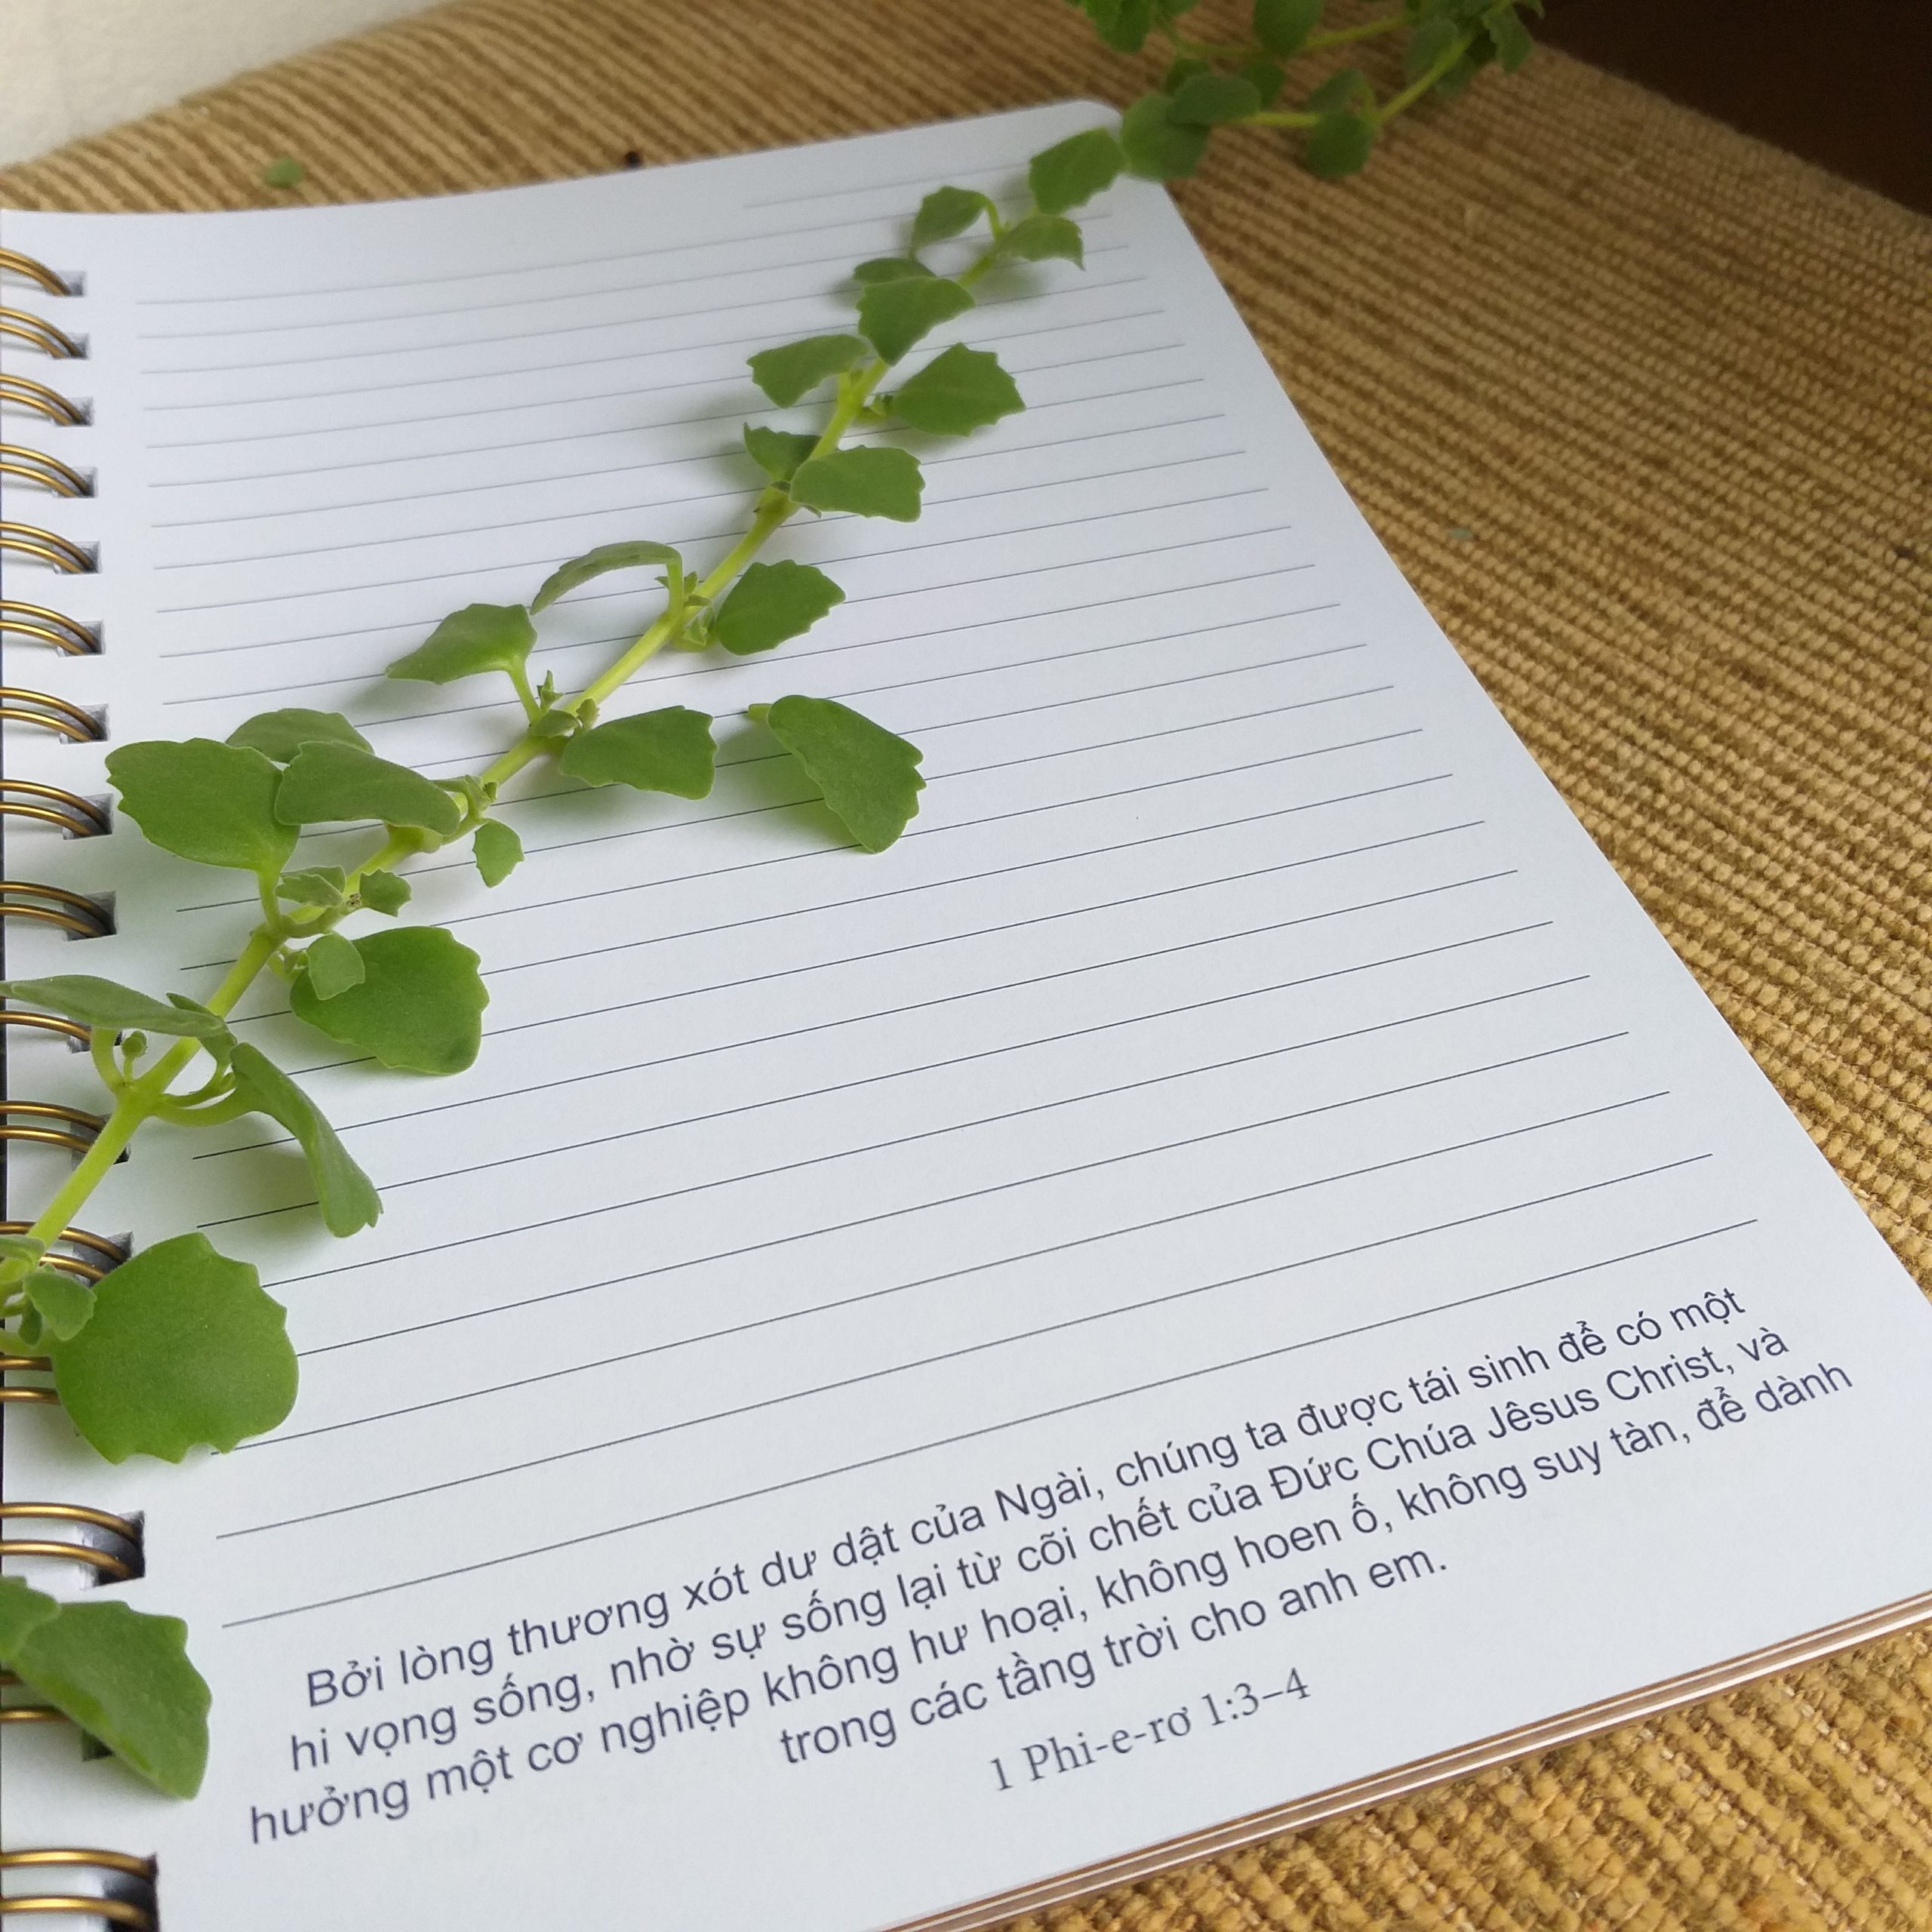 Bởi lòng thương xót dư dật của Ngài, chúng ta được tái sinh để có một
hi vọng sống, nhờ sự sống lại từ cõi chết của Đức Chúa Jêsus Christ, và
hưởng một cơ nghiệp không hư hoại, không hoen ố, không suy tàn, để dành
trong các tầng trời cho anh em.
1 Phi-e-rơ 1:3–4